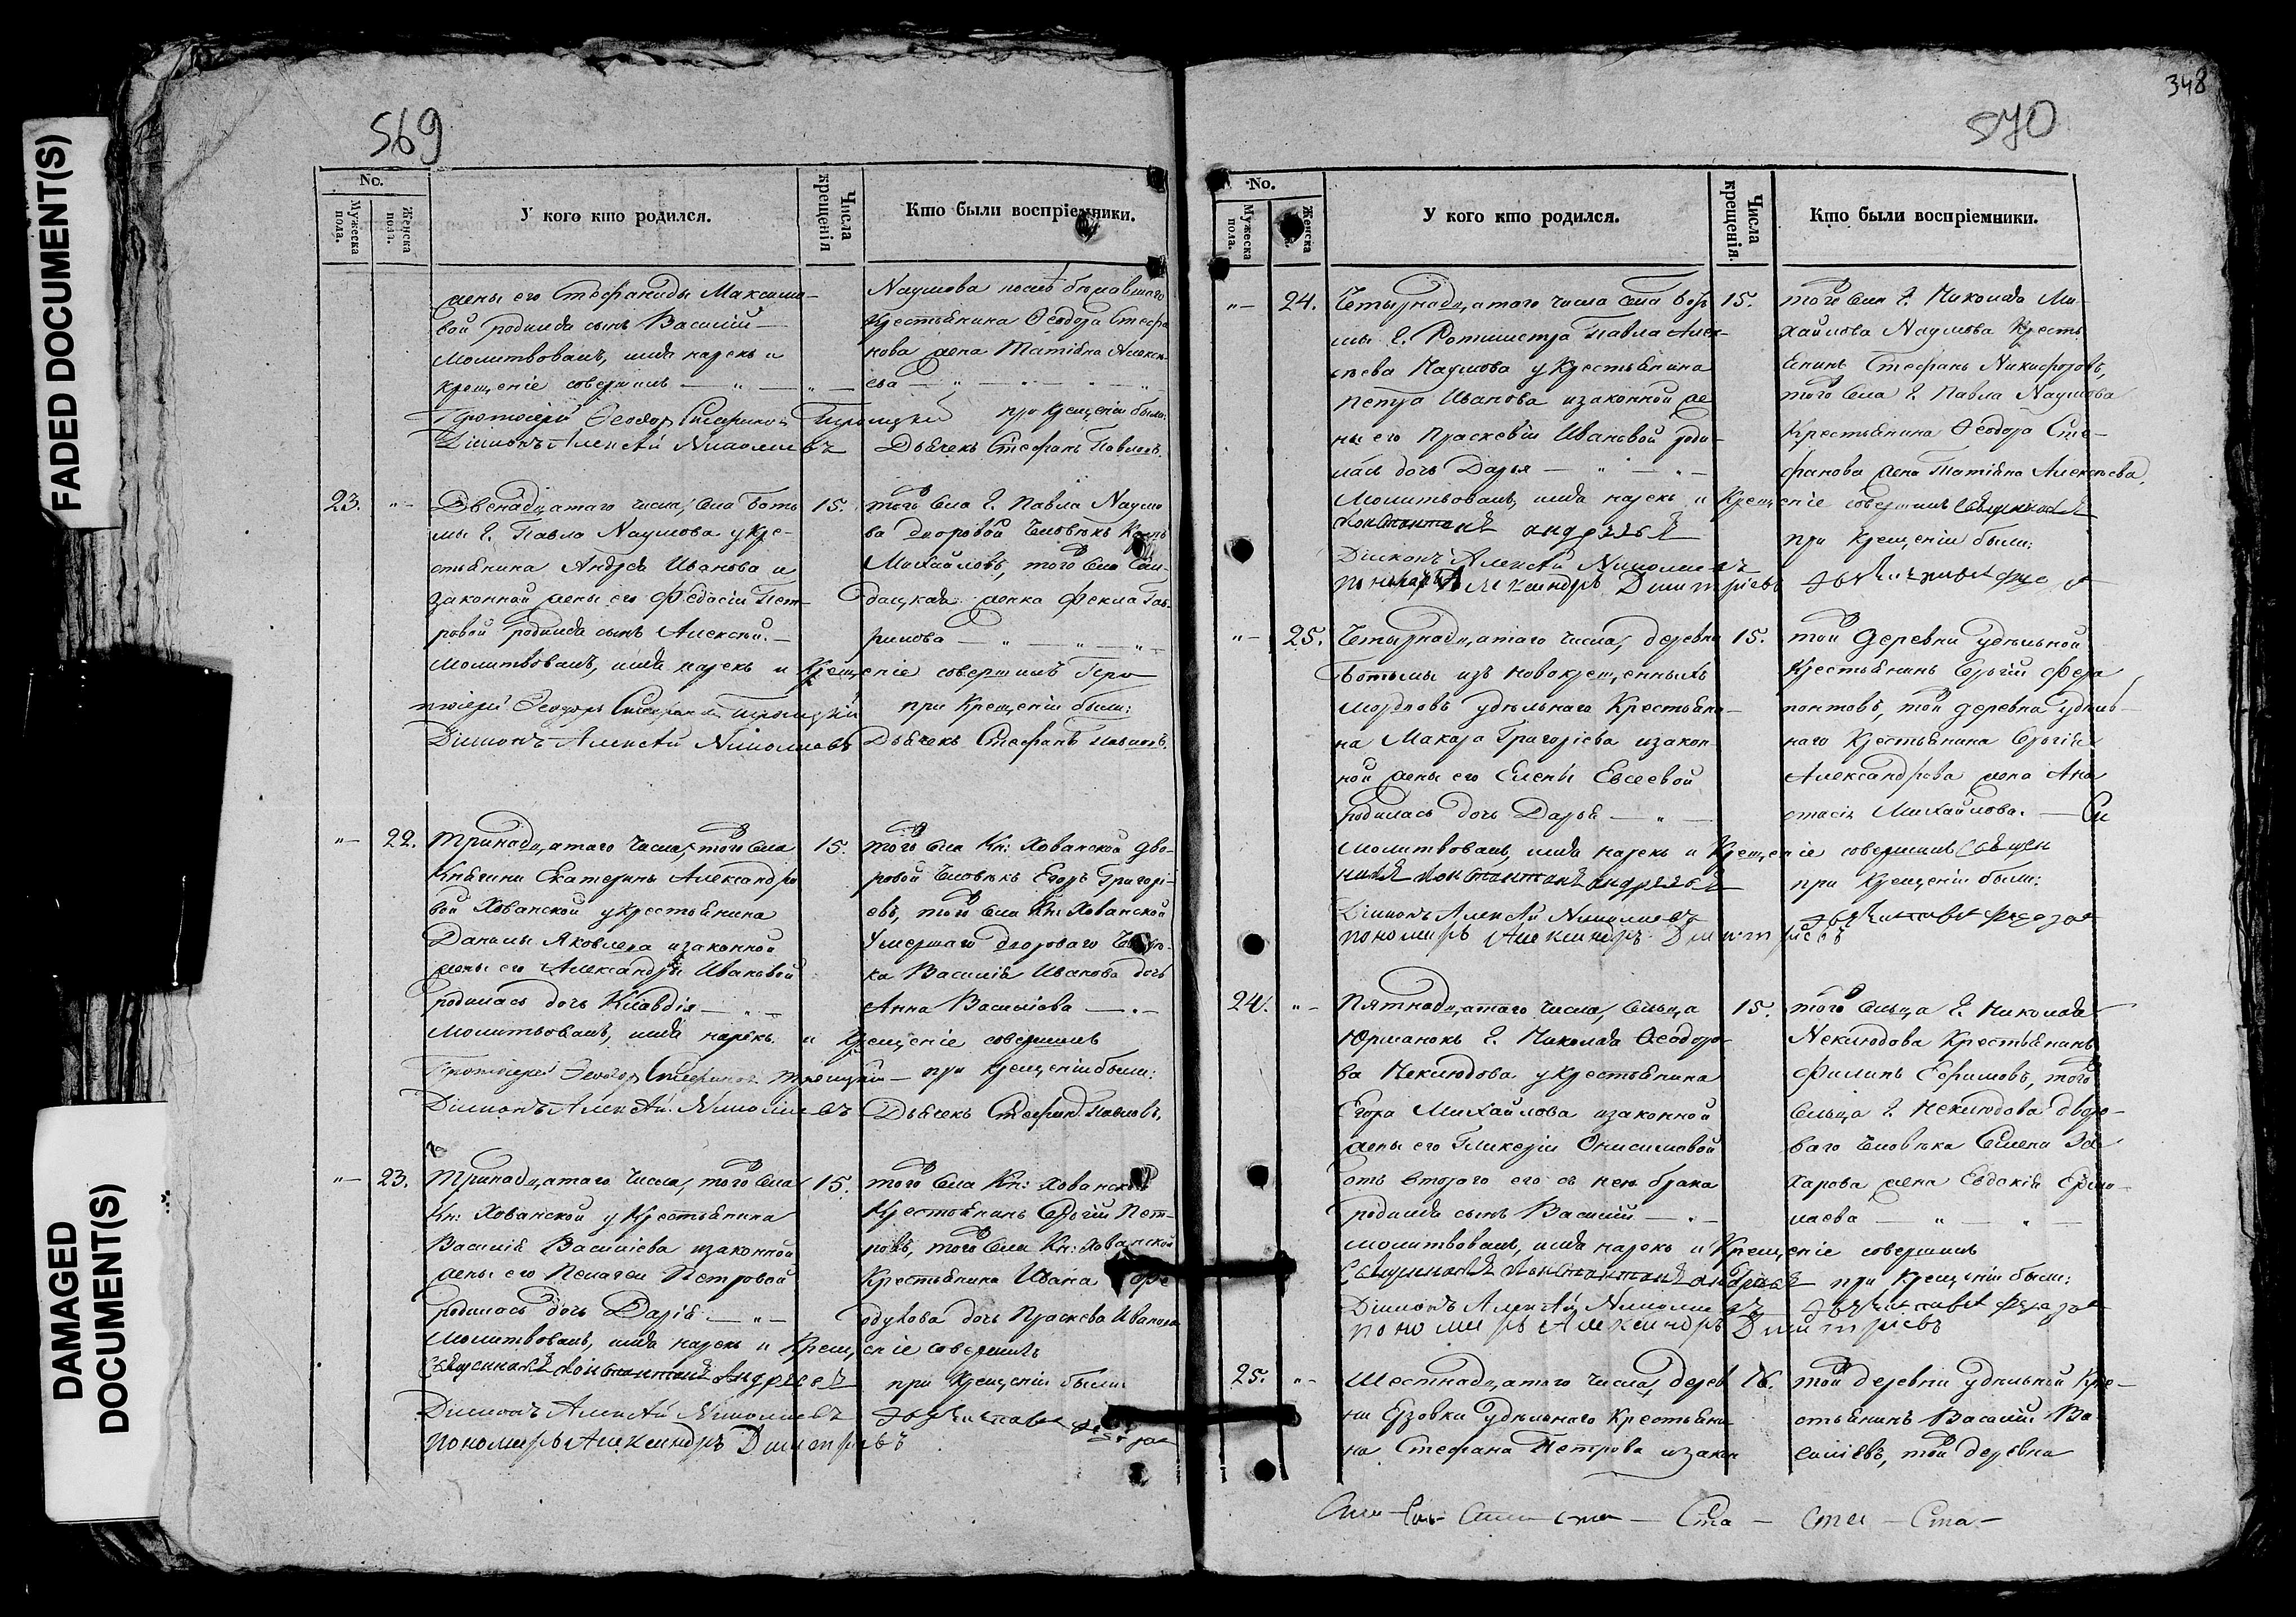 FADED DOCUMENT(S)
DAMAGED
DOCUMENT(S)
569
No.
Мужеска пола.
Женска пола.
У кого кто родился.
Числа крещенія
Кто были воспріемники.
жены его Стефаниды Максимо-
вой родился сынъ Василій —
Молитвовалъ, имя нарекъ и
крещеніе совершилъ — " — " —
Протоіерей Ѳеодоръ Стефановъ Троицкій
Діаконъ Алексѣй Николаевъ
Наумова
Крестьянина Ѳеодора Стефа
нова жена Татіяна Алексѣ-
ева — " —
при Крещеніи были:
Дьячекъ Стефанъ Павловъ.
23. "- Двенадцатаго числа, села Боть
мы Г. Павла Наумова у Кре-
стьянина Андрея Иванова и
законной жены его Федосіи Пет-
ровой родился сынъ Алексѣй. —
Молитвовалъ, имя нарекъ и Крещеніе совершилъ Про
тоіерей Ѳеодоръ Стефановъ Троицкій
Діаконъ Алексѣй Николаевъ
15. того села Г. Павла Наумо
ва дворовой человѣкъ
Михайловъ, того села Сол-
дацкая женка Фекла Гав-
рилова — " — " —
при Крещеніи были:
Дьячекъ Стефанъ Павловъ.
"- 22. Тринадцатаго числа, того села
Княгини Екатерины Александро
вой Хованской у крестьянина
Данилы Яковлева и законной
жены его Александры Ивановой
родилась дочь Клавдія — " —
Молитвовалъ, имя нарекъ и Крещеніе совершилъ
Протоіерей Ѳеодоръ Стефановъ Троицкій —
Діаконъ Алексѣй Николаевъ
15. того села Кн: Хованской дво-
ровой человѣкъ Егоръ Григорі-
евъ, той села Кн: Хованской
умершаго двороваго человѣ-
ка Василія Иванова дочь
Анна Василіева — " —
при крещеніи были:
Дьячекъ Стефанъ Павловъ.
"- 23. Тринадцатаго числа, того села
Кн: Хованской у Крестьянина
Василія Василіева и законной
жены его Пелагеи Петровой
родилась дочь Дарія — " —
Молитвовалъ, имя нарекъ и Крещеніе совершилъ
Священникъ Константинъ Андреевъ
Діаконъ Алексѣй Николаевъ
Пономарь Александръ Димитріевъ
15. того села Кн: Хованской
Крестьянинъ Сергій Пет-
ровъ, того села Кн: Хованской
Крестьянина Ивана Фе
дулова дочь Праскева Иванова
при Крещеніи были:
348
570
No.
Мужеска пола.
Женска
У кого кто родился.
Числа крещенія.
Кто были воспріемники.
"- 24. Четырнадцатаго числа села Боть
мы Г. Ротмистра Павла Алек-
сѣева Наумова у Крестьянина
Петра Иванова и законной же
ны его Праскевіи Ивановой роди-
лась дочь Дарья — " — " —
Молитвовалъ, имя нарекъ и Крещеніе совершилъ Священникъ
Константинъ Андреевъ
Діаконъ Алексѣй Николаевъ
Пономарь Александръ Димитріевъ
15. того села Г. Николая Ми-
хайлова Наумова Кресть
янинъ Стефанъ Никифоровъ,
того села Г. Павла Наумова
Крестьянина Ѳеодора Сте-
фанова жена Татіяна Алексѣева,
при Крещеніи были:
"- 25. Четырнадцатаго числа, деревни
Ботьмы изъ новокрещенныхъ
мордовъ удѣльнаго Крестьяни-
на Макара Григоріева и закон
ной жены его Елены Евсеевой
родилась дочь Дарья — " —
Молитвовалъ, имя нарекъ и Крещеніе совершилъ Священ
никъ Константинъ Андреевъ
Діаконъ Алексѣй Николаевъ
Пономарь Александръ Димитріевъ
15. той деревни удѣльной
Крестьянинъ Сергій Фера
понтовъ, той деревни удѣль-
наго Крестьянина Сергія
Александрова жена Ана
стасія Михайлова. —
при Крещеніи были:
24. "- Пятнадцатаго числа, сельца
Юрманокъ Г. Николая Ѳеодоро-
ва Неклюдова у крестьянина
Егора Михайлова и законной
жены его Гликеріи Онисимовой
отъ втораго его съ нею брака
родился сынъ Василій — " —
Молитвовалъ, имя нарекъ и Крещеніе совершилъ
Священникъ Константинъ Андреевъ
Діаконъ Алексѣй Николаевъ
Пономарь Александръ Димитріевъ
15. того сельца Г. Николая
Неклюдова Крестьянинъ
Филипъ Ефимовъ, того
сельца Г. Неклюдова дворо-
ваго человѣка Семена За
харова жена Евдокія Ермо-
лаева — " — " —
при Крещеніи были:
25. "- Шестнадцатаго числа, дерев
ни Ерзовки удѣльнаго Крестьяни
на Стефана Петрова и закон
16. той деревни удѣльной Кре-
стьянинъ Василій Ва-
силіевъ, той деревни
Ста — Ста —